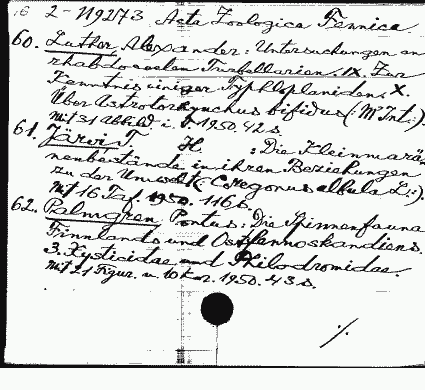 2-N9273. Acta Zoologica Fennica.
60. Luther, Alexander: Untersuchungen an
rhabdocoelen Turbellarien. IX. Zur
Kenntnis einiger Typhloplaniden. X.
Über Astrotorhynchus bifidus (M'Int.).
Mit 31 Abbild. i. T. 1950. 42 s.
61. Järvi, T. H.: Die Kleinmarä-
nenbestände in ihren Beziehungen
zu der Umwelt (Coregonus albula L.).
Mit 16 Taf. 1950. 116 s.
62. Palmgren, Pontus: Die Spinnenfauna
Finnlands und Ostfennoskandiens.
3. Xysticidae und Philodromidae.
Mit 21 Figur. u. 10 Kar. 1950. 43 s.
./.